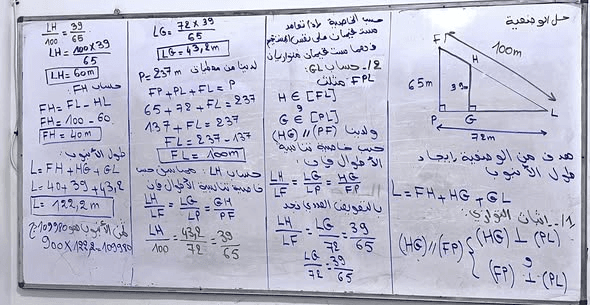 حل الوضعية
F
H
100m
65m
39m
P
G
L
72m
هدف من الوضعية إيجاد
طول الأنبوب
L=FH+HG+GL
1/_ إثبات التوازي:
(HG)//(FP) { (HG) ⊥ (PL)
و
(FP) ⊥ (PL)
حسب الخاصية إذا تعامد
مستقيمان على نفس المستقيم
فهما مستقيمان متوازيان
2/_ حساب GL:
FPL مثلث
H ∈ [FL]
و
G ∈ [PL]
(HG) // (PF) ولدينا
حسب خاصية تناسبية
الأطوال فإن
LH/LF = LG/LP = HG/FP
بالتعويض العددي نجد
LH/LF = LG/72 = 39/65
LG/72 = 39/65
LG = 72×39/65
LG = 43,2m
لدينا من معطيات P=237m
FP+PL+FL=P
65+72+FL=237
137+FL=237
FL=237-137
FL=100m
حساب LH:
خاصية تناسبية الأطوال فإن
LH/LF = LG/LP = GH/PF
LH/100 = 43,2/72 = 39/65
LH/100 = 39/65
LH = 100×39/65
LH=60m
حساب FH:
FH=FL-HL
FH=100-60
FH=40m
طول الأنبوب:
L=FH+HG+GL
L=40+39+43,2
L=122,2m
ثمن الأنبوب هو 109980 دج
900×122,2=109980